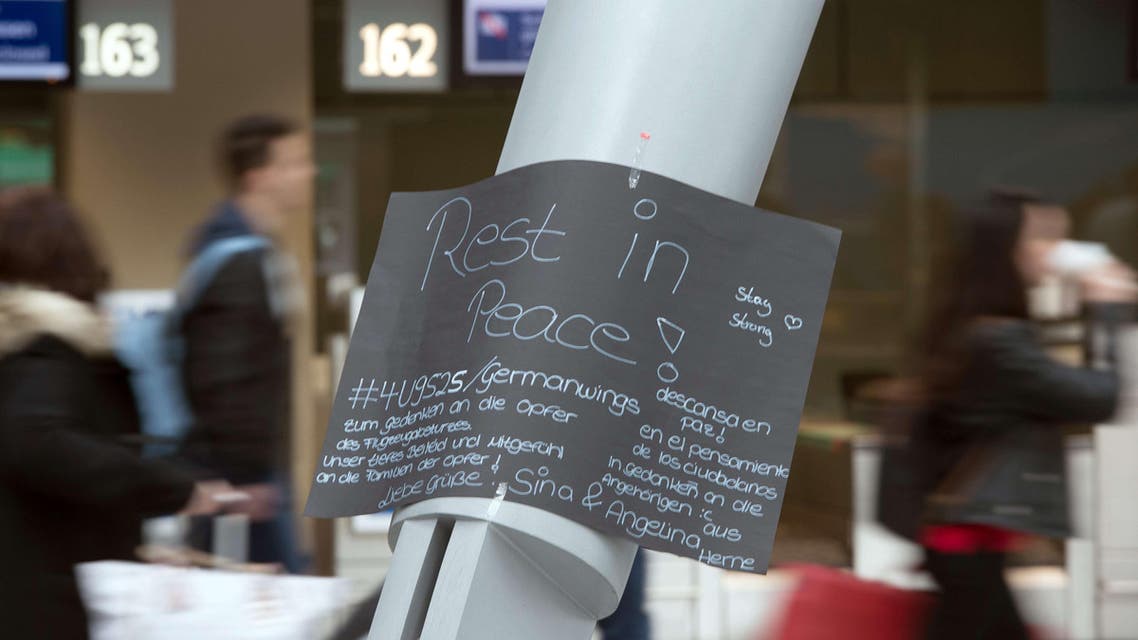 163
162
Rest in
Peace!
Stay
Strong ♡
#4U9525/Germanwings
zum Gedenken an die Opfer
des Flugzeugabsturzes.
unser tiefes Beileid und Mitgefühl
an die Familien der Opfer!
Liebe Grüße! Sina & Angelina
aus
Herne
descansa en
paz!
en el pensamiente
de los ciudadanos
in gedenken an die
Angehörigen :c